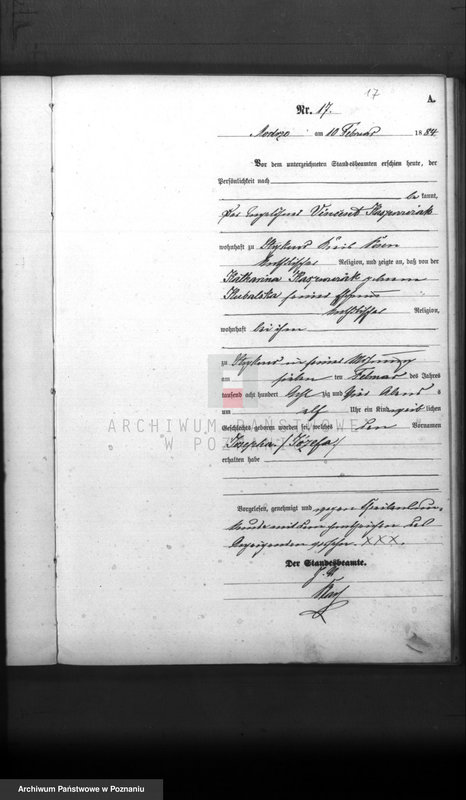 17
A.
Nr. 17.
am 10 Februar 1884
Vor dem unterzeichneten Standesbeamten erschien heute, der
Persönlichkeit nach
be kannt,
Der Vincent
wohnhaft zu Kreis
katholischer Religion, und zeigte an, daß von der
Katharina geborene
Kubalska seiner Ehefrau
katholischer Religion,
wohnhaft bei ihm
zu in seiner Wohnung
am sieben ten Februar des Jahres
tausend acht hundert acht zig und vier Abends
um elf Uhr ein Kind weib lichen
Geschlechts geboren worden sei, welches den Vornamen
Josepha /Józefa/
erhalten habe
ARCHIWUM PAŃSTWOWE
W POZNANIU
Vorgelesen, genehmigt und wegen
mit dem Handzeichen des
Anzeigenden XXX.
Der Standesbeamte.
Archiwum Państwowe w Poznaniu